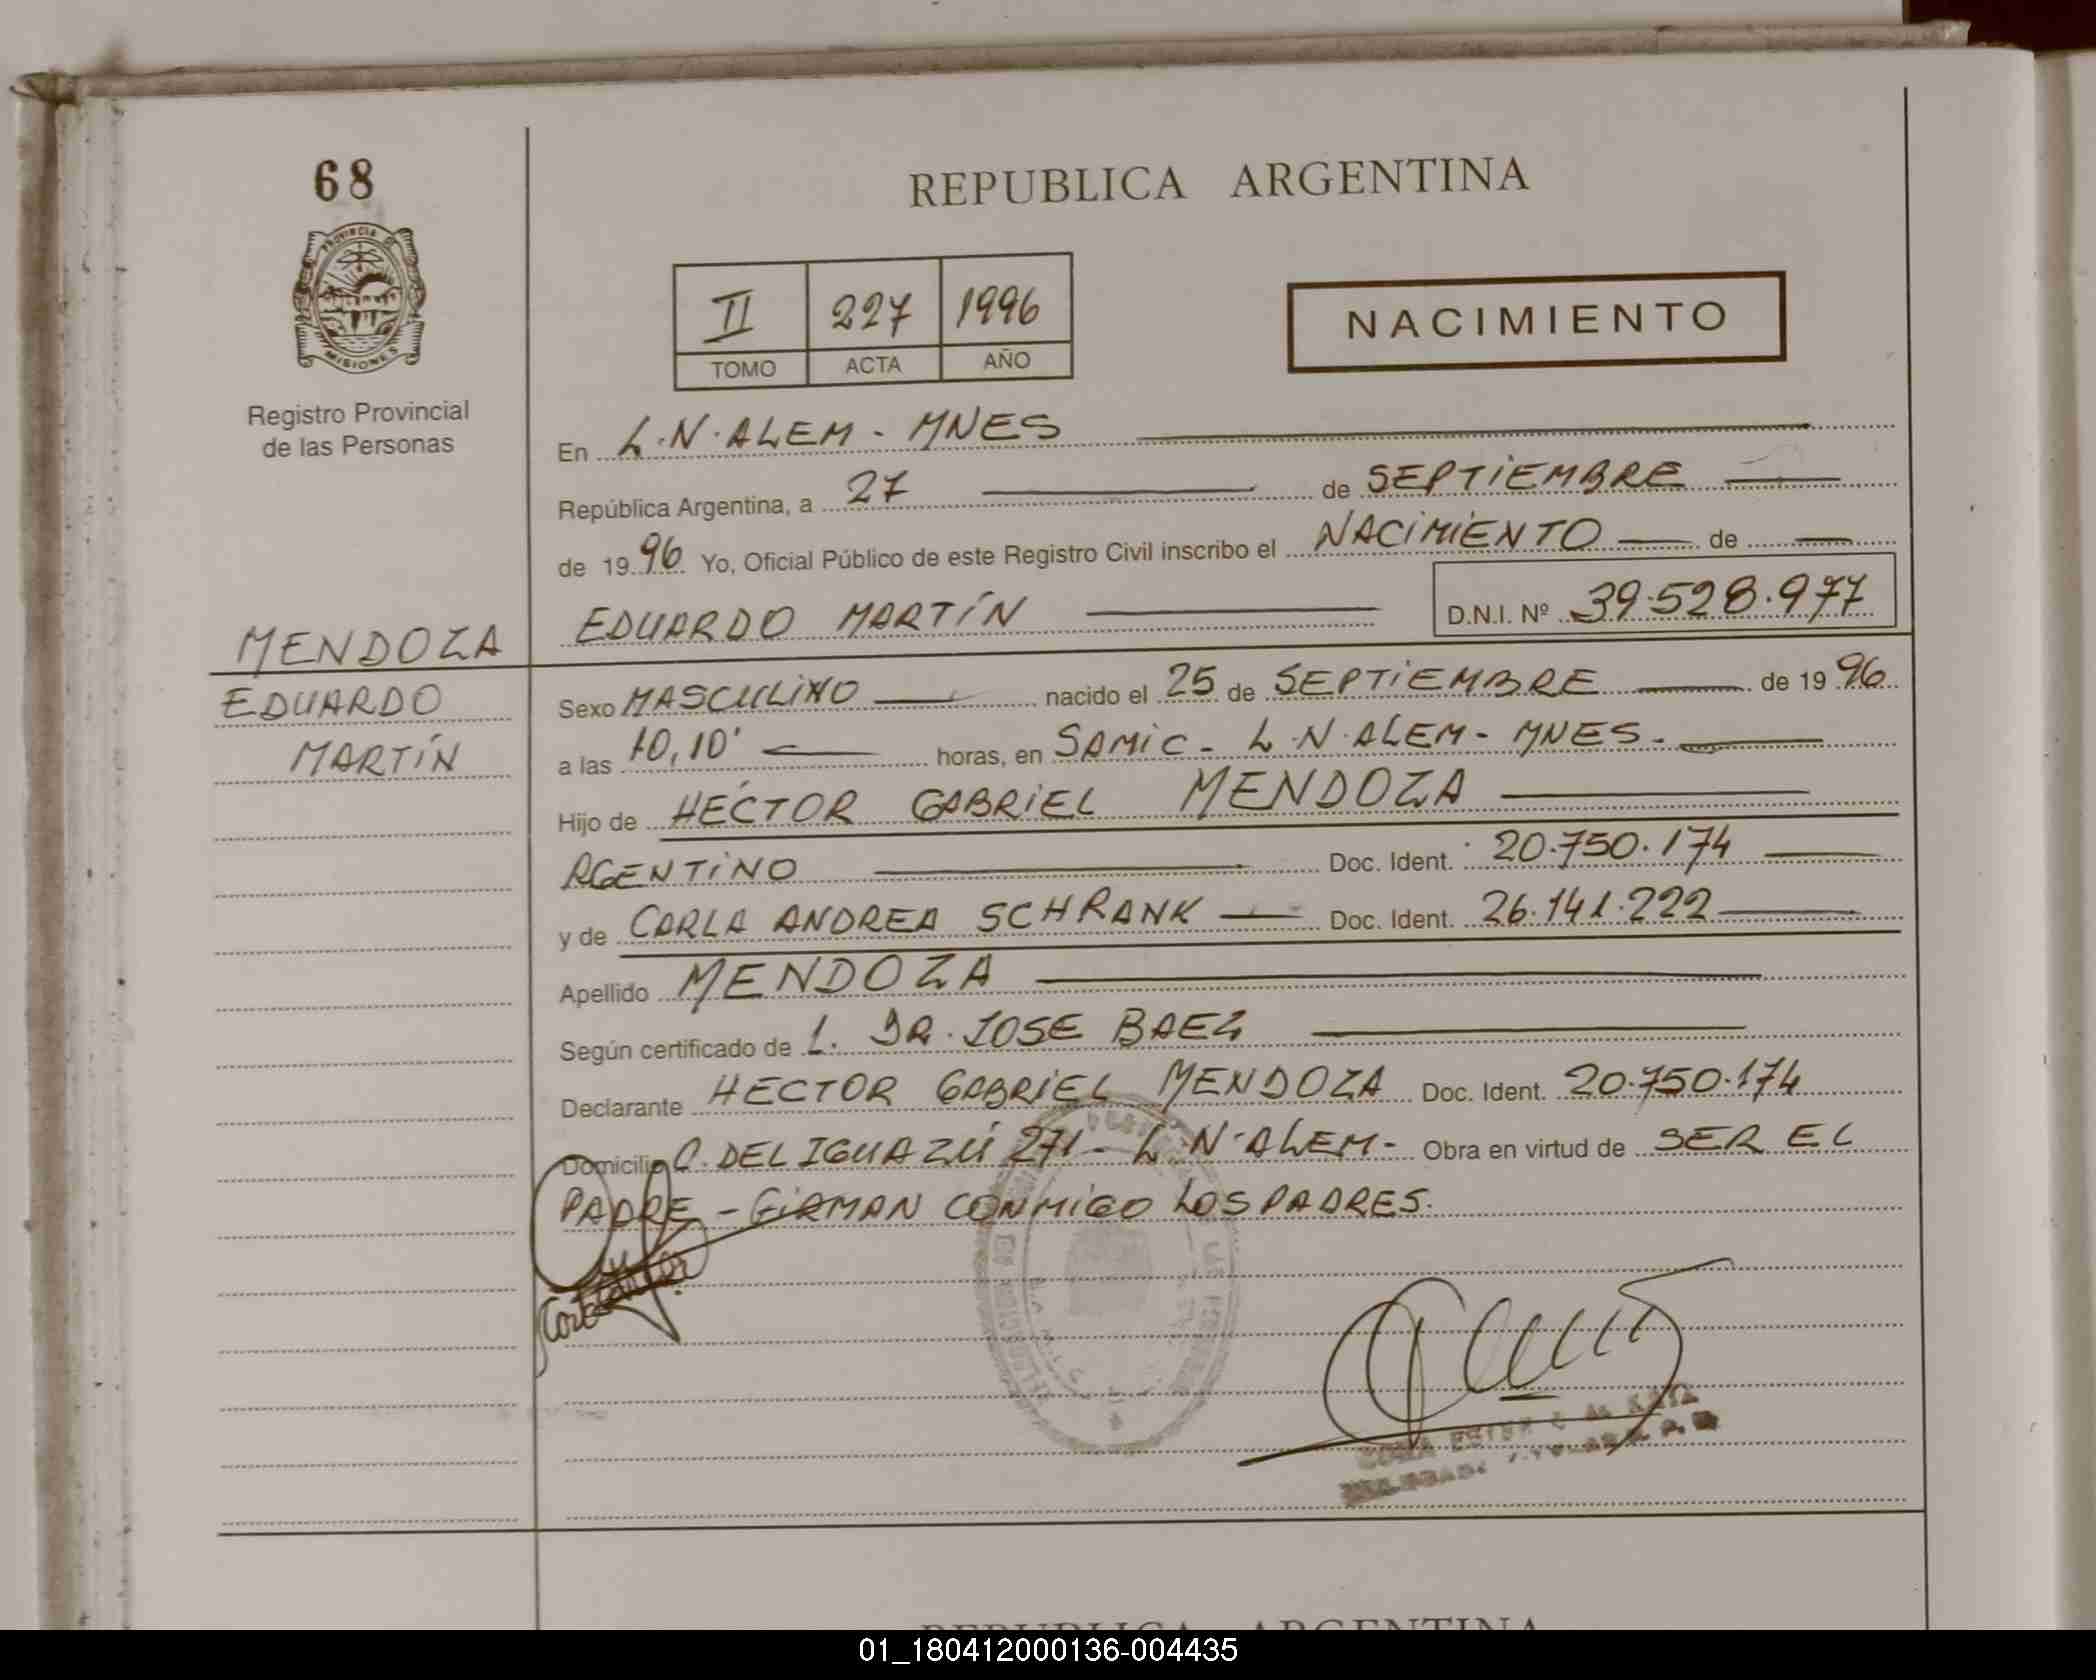 68
PROVINCIA DE
MISIONES
Registro Provincial
de las Personas
REPUBLICA ARGENTINA
II 227 1996
TOMO ACTA AÑO
NACIMIENTO
En L.N.ALEM - MNES
República Argentina, a 27 de SEPTIEMBRE
de 1996 Yo, Oficial Público de este Registro Civil inscribo el NACIMIENTO de
EDUARDO MARTÍN D.N.I. Nº 39.528.977
MENDOZA
EDUARDO
MARTÍN
Sexo MASCULINO nacido el 25 de SEPTIEMBRE de 1996
a las 10,10' horas, en SAMIC - L.N.ALEM - MNES.
Hijo de HÉCTOR GABRIEL MENDOZA
ARGENTINO Doc. Ident. 20.750.174
y de CARLA ANDREA SCHRANK Doc. Ident. 26.141.222
Apellido MENDOZA
Según certificado de 1. DR. JOSE BAEZ
Declarante HECTOR GABRIEL MENDOZA Doc. Ident. 20.750.174
Domicilio C. DEL IGUAZÚ 271 - L.N.ALEM - Obra en virtud de SER EL
PADRE - FIRMAN CONMIGO LOS PADRES.
REPUBLICA ARGENTINA
01_180412000136-004435